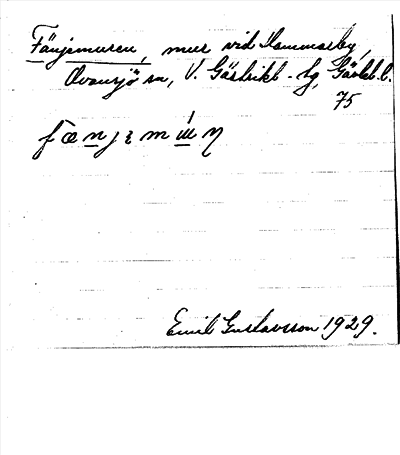 Fänjamuren, mur vid Hammarby,
Ovansjö sn, V. Gästrikl. tg, Gävleb. l.
75
Emil Gustavsson 1929.